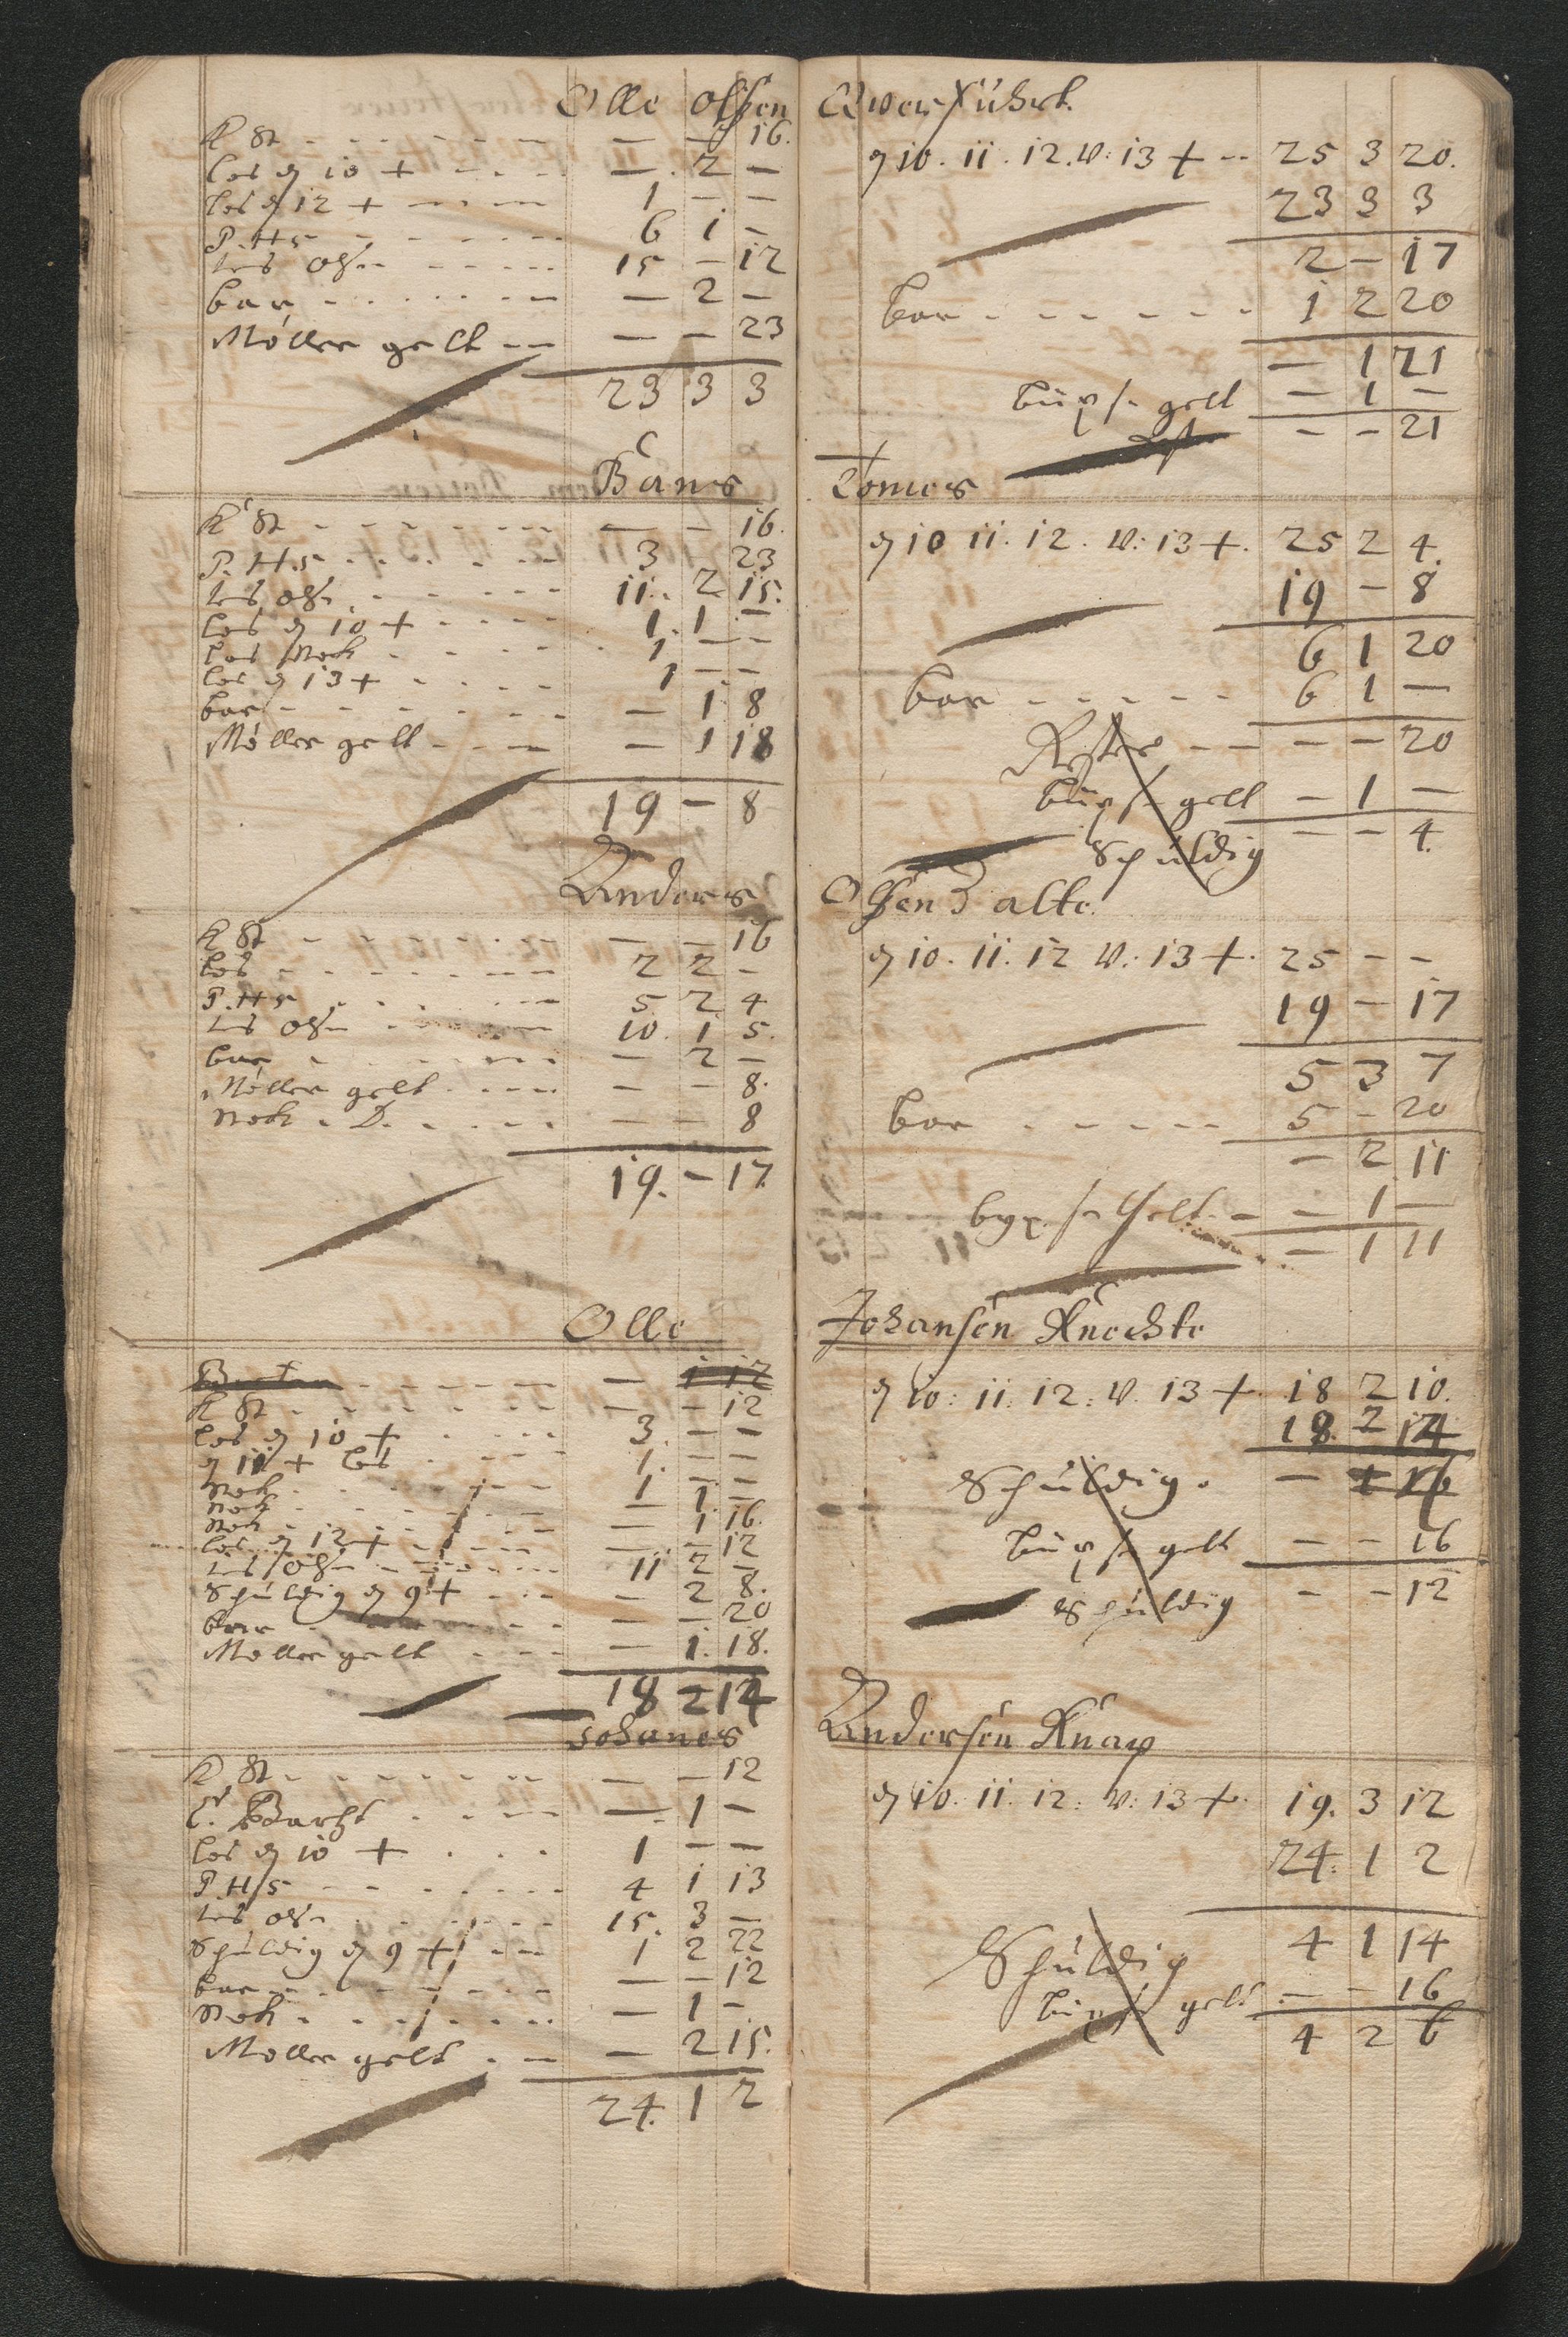 Olle Olsen
K St - - - - - — - 16.
los dn 10 + - - - - — . 2 —
los dn 12 + - - - 1 - -
P. H s - - - - - 6 1 -
- - - - - 15 - 12
bar - - - - - — 2 -
Möller gelt - - — - 23
23 3 3
Bans
K St - - - - - — - 16.
P. H. s - - - - - 3 23
- - - - - 11. 2 15.
los dn 10 + - - - - 1. 1 -
los Noch - - - - 1 - -
los dn 13 + - - - - 1 - -
bar - - - - - — 1 8
Möller gelt - - - — 1 18
19 - 8
Anders
K St - - - - - — - 16
los - - - - - 2 2 -
P. H s - - - - - 5 2 4
- - - - - 10. 1 5.
bar - - - - - — 2 -
Möller gelt - - - — - 8.
Noch . D. - - - - — - 8
19. - 17.
Olle
- - - - - — 1 12
K St - - - - - — - 12
los dn 10 + - - - 3. - -
dn 11 + los - - - 1. - -
Noch - - - - 1 - -
Noch - - - - — 1. -
Noch - - - - — 1 16.
los dn 12 + - - - — - 12
- - - - - 11 2 -
Schuldig dn 9 + - - — 2 8.
bar - - - - - — - 20
Moller gelt - - - — 1. 18.
18 2 14
Johanes
K St - - - - - — - 12
- - - - — 1 -
los dn 10 + - - - 1 - -
P. H s - - - - - 4 1 13
- - - - - 15. 3 -
Schuldig dn 9 + - - 1 2 22
bar - - - - - — - 12
Noch - - - - - — 1 -
Moller gelt - - — 2 15.
24. 1 2
Qverführt.
dn 10. 11. 12. V: 13 + - - 25 3 20.
23 3 3
2 - 17
bar - - - - - 1 2 20
— 1 21
büxse gelt — 1 —
Rest - - 21
Tomes
dn 10 11. 12. V: 13 +. 25 2 4.
19 - 8
6 1 20
bar - - - - - 6 1 —
- - - - 20
büxse gelt - 1 —
Schuldig - - 4.
Olsen D alte.
dn 10. 11. 12 V: 13 +. 25 - -
19 - 17
5 3 7
bar - - - - - 5 - 20
- 2 11
byxse Gelt - - 1 —
- 1 11
Johansen Knechte
dn 10: 11: 12: V. 13 +. 18 2 10.
18. 2 14
Schuldig. — 16
büxse gelt — - 16
Schuldig - - 12
Andersen Knap
dn 10. 11. 12: V: 13 +. 19. 3 12
24: 1 2
Schuldig 4 1 14
büxse gelt - - 16
4 2 6